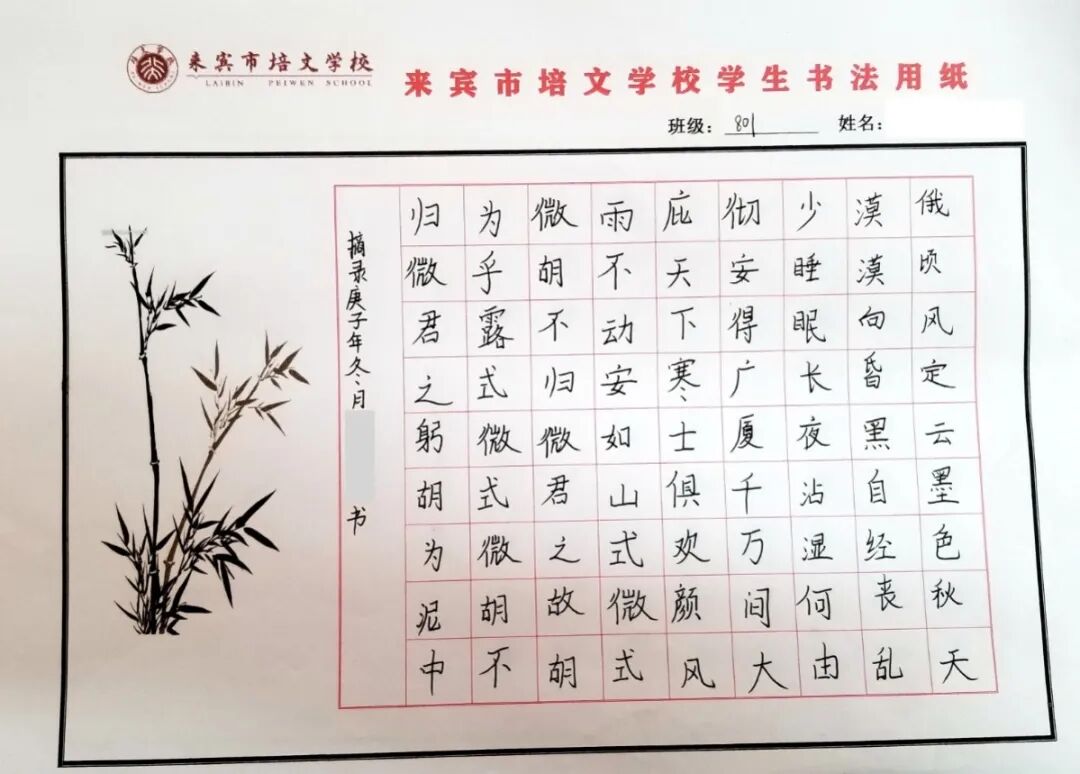 来宾市培文学校
LAIBIN PEIWEN SCHOOL
来宾市培文学校学生书法用纸
班级：801 姓名：
俄顷风定云墨色秋天
漠漠向昏黑自经丧乱
少睡眠长夜沾湿何由
彻安得广厦千万间大
庇天下寒士俱欢颜风
雨不动安如山式微式
微胡不归微君之故胡
为乎露式微式微胡不
归微君之躬胡为泥中
摘录庚子年冬月 书